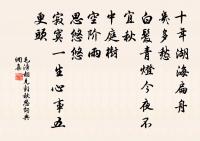 十年湖海扁舟
幾多愁
白髮青燈今夜不
宜秋
中庭樹
空階雨
思悠悠
寂寞一生心事五
更頭
相見歡秋思